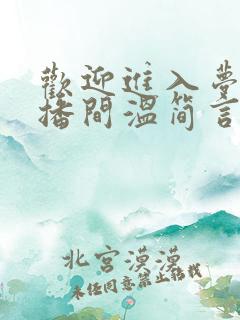 歡迎進入夢
播間溫簡言
北宮漠漠
未經同意禁止轉載